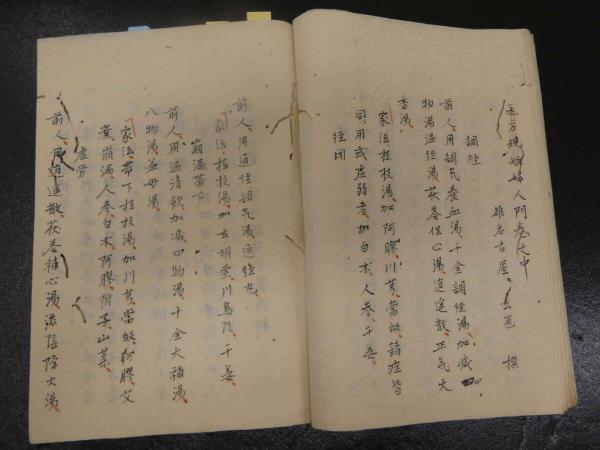 医方規矩婦人門卷之中
雒 名古屋 玄医 撰
調經
前人用調氣養血湯千金調經湯加減四
物湯溫經湯茯苓佳心湯逍遙散正氣天
香湯
家法桂枝湯加阿膠川芎當皈諸症皆
同用或虛弱者加白朮人參干姜
經閉
前人用通經調氣湯通經丸
家法桂枝湯加玄胡索川烏頭干姜
崩漏帶下
前人用溫清飲加減四物湯十全大補湯
八物湯益母湯
家法帶下桂枝湯加川芎當皈阿膠艾
葉崩漏人參白朮阿膠附子山茱
虛勞
前人用逍遙散茯苓補心湯滋陰降火湯